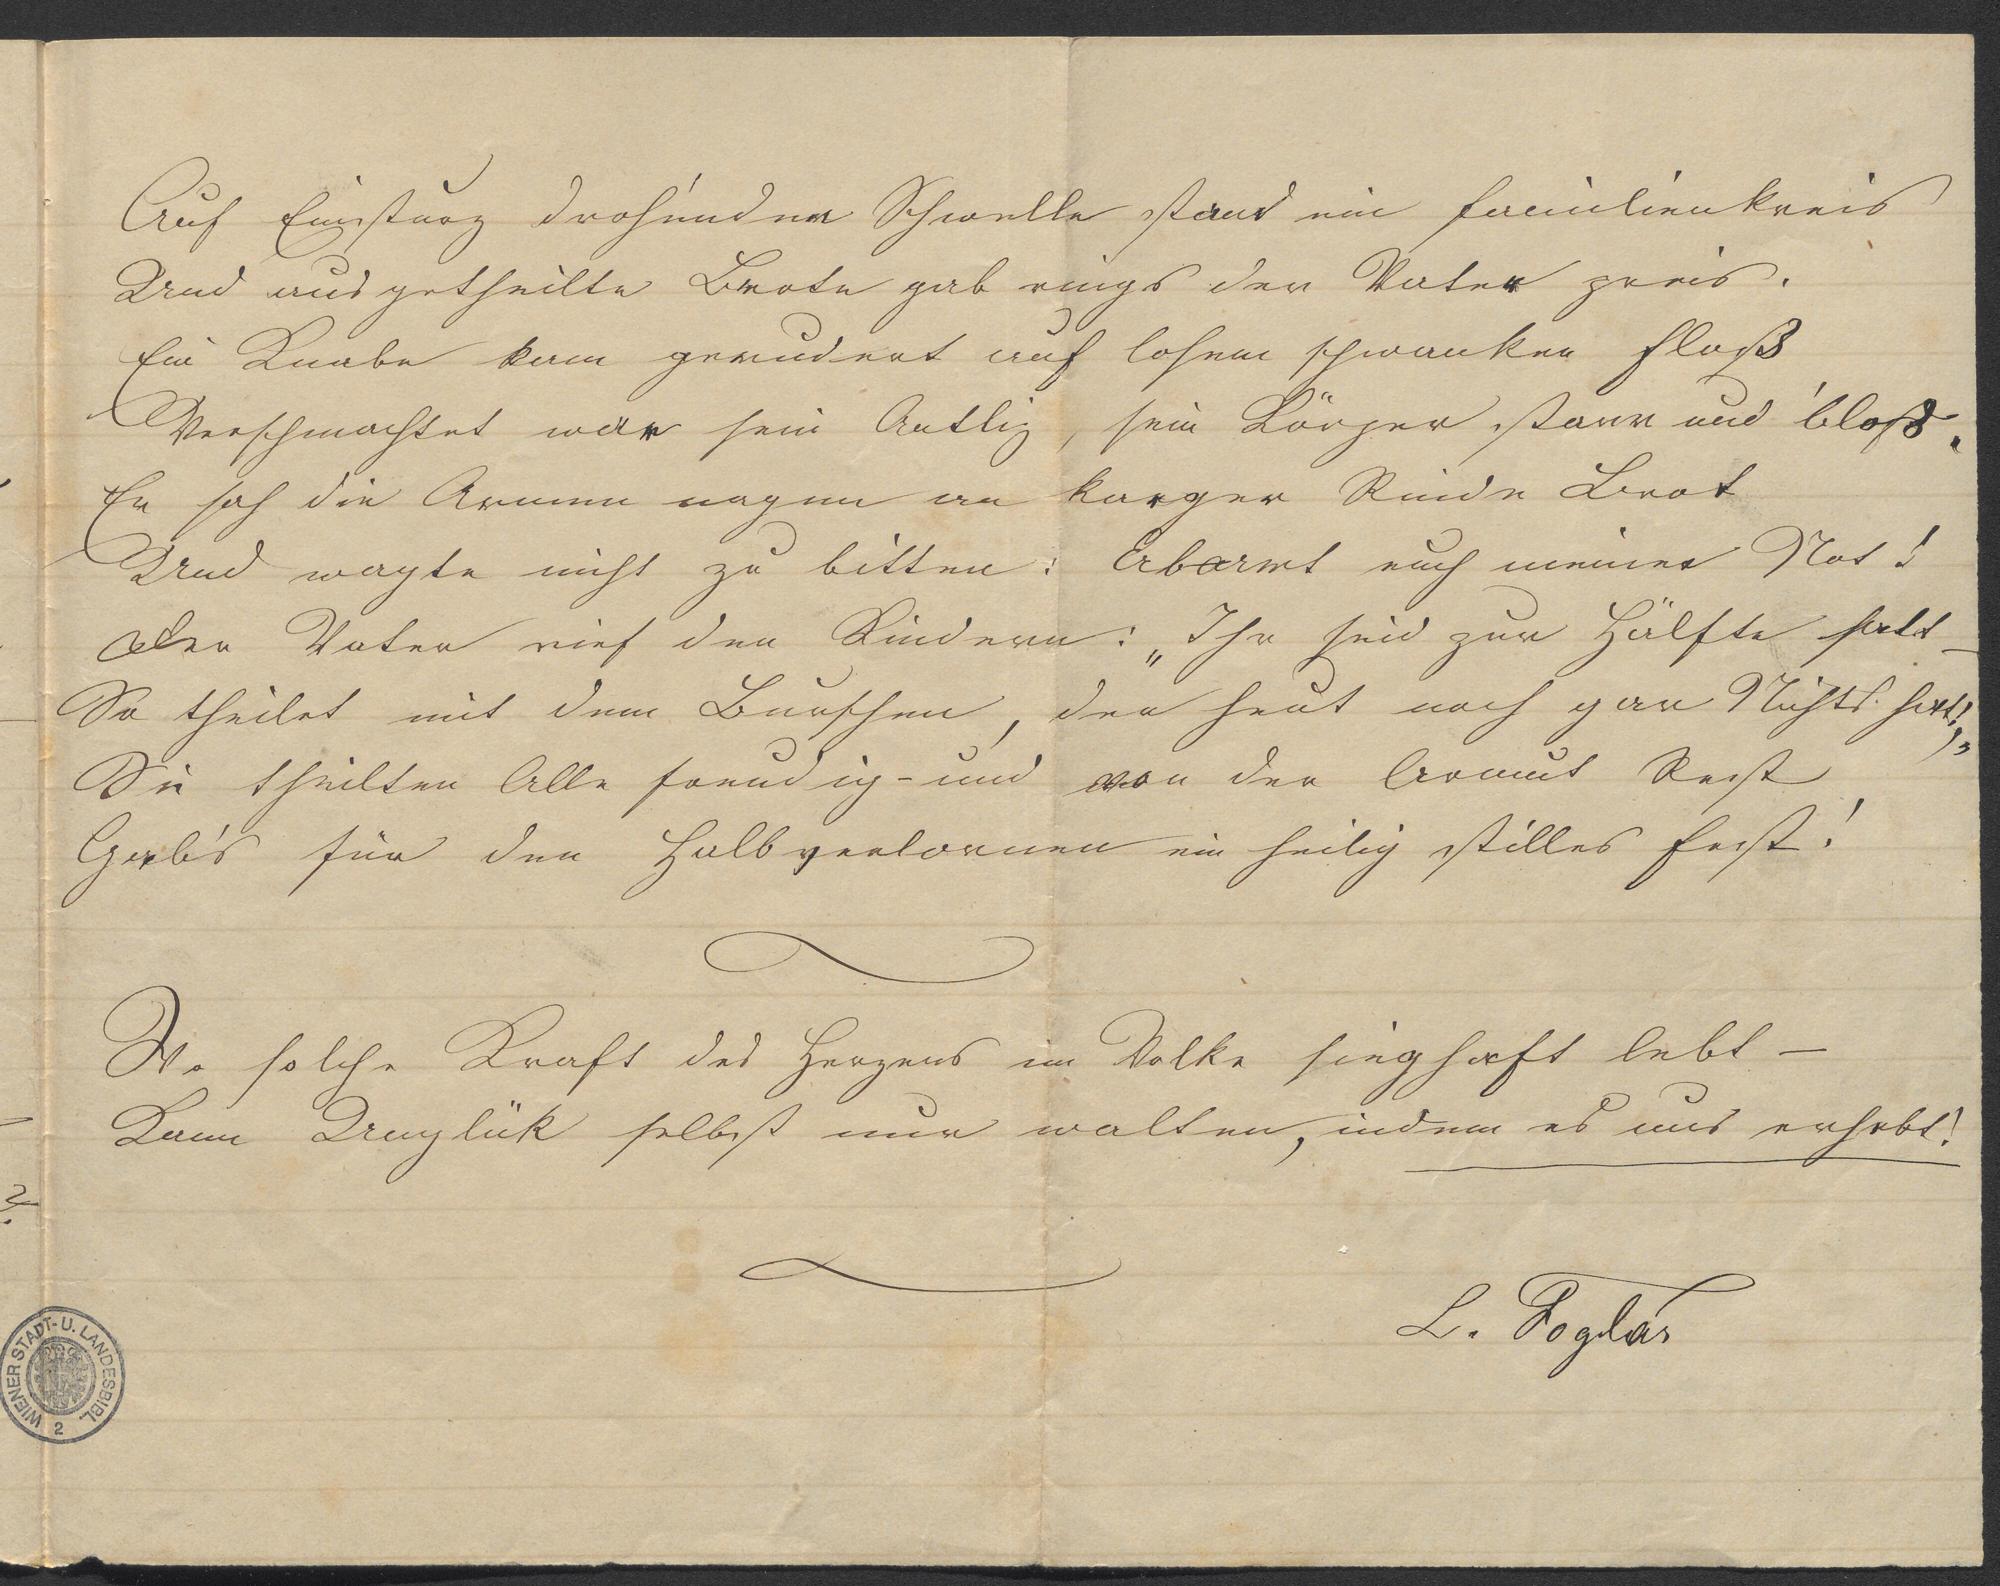 Auf Einsturz drohender Schwelle stand ein Familienkreis
Und ausgetheilte Brote gab rings der Vater preis.
Ein Knabe kam gerudert auf losem schwanken Floß
Verschmachtet war sein Antliz, sein Körper starr und bloß.
Er sah die Armen nagen an karger Rinde Brot
Und wagte nicht zu bitten: Erbarmt euch meiner Not!
Der Vater rief den Kindern: „Ihr seid zur Hälfte satt –
So theilet mit dem Burschen, der heut noch gar Nichts hat!"
Sie theilten Alle freudig – und von der Armut Rest
Gab's für den Halbverlornen ein heilig stilles Fest!
Wo solche Kraft des Herzens im Volke sieghaft lebt –
Kann Unglük selbst nur walten, indem es uns erhebt!
L. Foglár
WIENER STADT- U. LANDESBIBL.
2